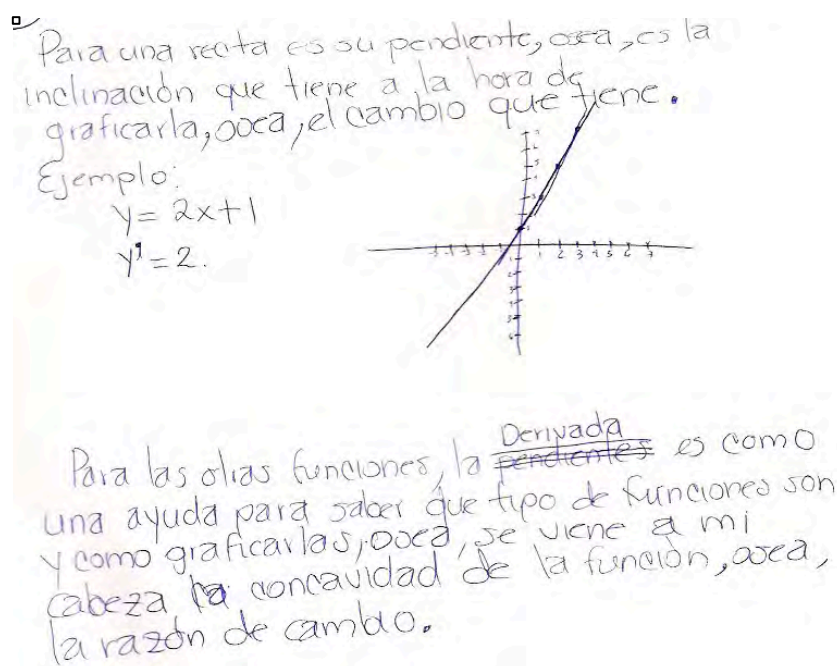 Para una recta es su pendiente, osea, es la
inclinación que tiene a la hora de
graficarla, osea, el cambio que tiene.
Ejemplo:
y = 2x+1
y' = 2.
1 2 3 4 5 6 7
Derivada
Para las otras funciones, la pendientes es como
una ayuda para saber que tipo de funciones son
y como graficarlas, osea, se viene a mi
cabeza la concavidad de la función, osea,
la razón de cambio.